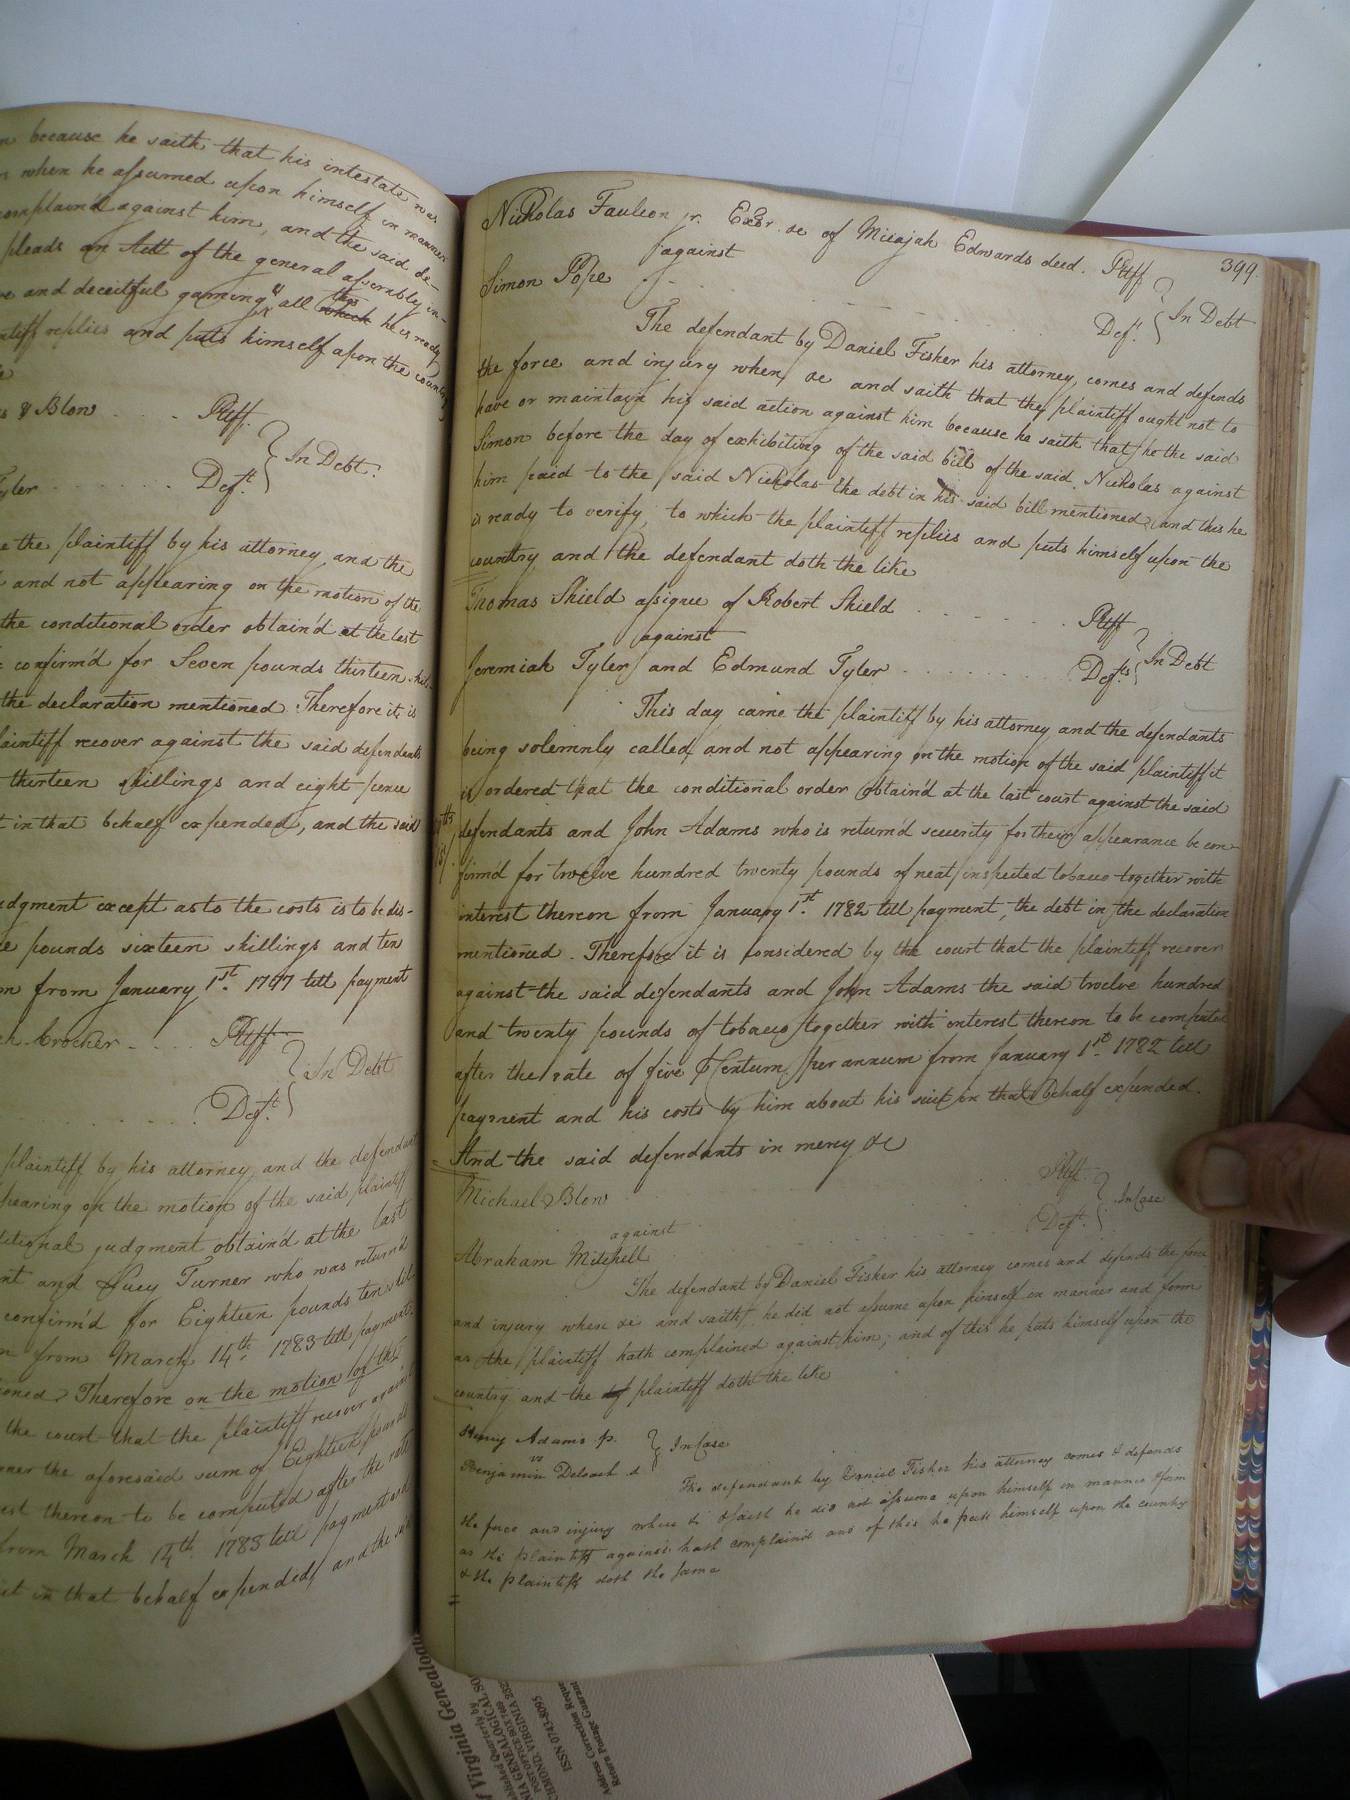 because he saith that his intestate was
when he assumed upon himself in manner
complain'd against him, and the said de-
pleads an Act of the general assembly in-
and deceitful gaming & all this which he is ready
replies and puts himself upon the country
& Blow . . . . Pltff.
In Debt.
Tyler . . . . . . . Deft.
the plaintiff by his attorney, and the
and not appearing on the motion of the
the conditional order obtain'd at the last
confirm'd for Seven pounds thirteen shil-
the declaration mentioned. Therefore it is
plaintiff recover against the said defendants
thirteen shillings and eight pence
in that behalf expended, and the said
judgment except as to the costs is to be dis-
pounds sixteen shillings and ten
from January 1st. till payment
Crocher . . . . Pltff
In Debt
Deft.
plaintiff by his attorney, and the defendant
appearing on the motion of the said plaintiff
judgment obtain'd at the last
and Lucy Turner who was return'd
confirm'd for Eighteen pounds ten shil
from March 14th. 1783 till payment
Therefore on the motion of the
the court that the plaintiff recover against
the aforesaid sum of Eighteen pounds
thereon to be computed after the rate
from March 14th. 1783 till payment and
in that behalf expended, and the said
399.
Nicholas Faulcon jr. Exor. &c of Micajah Edwards decd. Pltff
against
In Debt
Simon Pope . . . . . . . Deft.
The defendant by Daniel Fisher his attorney, comes and defends
the force and injury when, &c and saith that the plaintiff ought not to
have or maintain his said action against him because he saith that he the said
Simon before the day of exhibiting of the said bill of the said Nicholas against
him paid to the said Nicholas the debt in his said bill mentioned, and this he
is ready to verify, to which the plaintiff replies and puts himself upon the
country and the defendant doth the like
Thomas Shield assignee of Robert Shield . . . . . . Pltff
against
In Debt
Jeremiah Tyler, and Edmund Tyler . . . . . . . . Defts.
This day came the plaintiff by his attorney and the defendants
being solemnly called, and not appearing on the motion of the said plaintiff it
is ordered that the conditional order obtain'd at the last court against the said
defendants and John Adams who is return'd security for their appearance be con-
firm'd for twelve hundred twenty pounds of neat inspected tobacco together with
interest thereon from January 1st. 1782 till payment, the debt in the declaration
mentioned. Therefore it is considered by the court that the plaintiff recover
against the said defendants and John Adams the said twelve hundred
and twenty pounds of tobacco, together with interest thereon to be computed
after the rate of five ⅌ Centum per annum from January 1st. 1782 till
payment and his costs by him about his suit in that behalf expended.
And the said defendants in mercy &c
Michael Blow Pltff.
against
In Case
Abraham Mitchell Deft.
The defendant by Daniel Fisher his attorney comes and defends the force
and injury when &c and saith, he did not assume upon himself in manner and form
as the plaintiff hath complained against him; and of this he puts himself upon the
country and the df plaintiff doth the like
Henry Adams p.
vs
In Case
Benjamin Deloach d
The defendant by Daniel Fisher his attorney comes & defends
the force and injury when &c & saith he did not assume upon himself in manner & form
as the plaintiff against hath complained and of this he puts himself upon the country
& the plaintiff doth the same
Virginia Genealogi
Published Quarterly by
VIRGINIA GENEALOGICAL SO
POST OFFICE BOX
RICHMOND, VIRGINIA
ISSN 0743-8095
Address Correction Reque
Return Postage Guarant